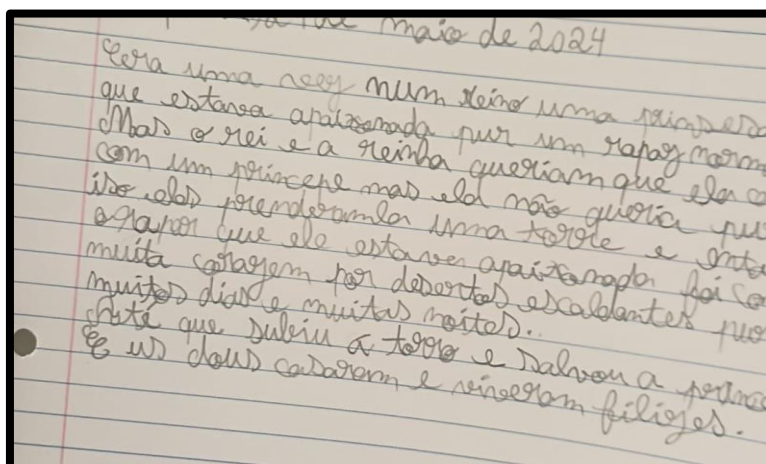 maio de 2024
Era uma vez num reino uma prinsesa
que estava apaixonada pur um rapaz norm
Mas o rei e a reinha queriam que ela c
com um príncepe mas ela não queria pu
iso elos prenderamla uma torre e ento
o rapor que ele estava apaixonada foi co
muita coragem por desertos escaldantes puo
muitos dias e muitas noites.
Até que subiu a torre e salvou a prince
E us dous casaram e viveeram filizes.